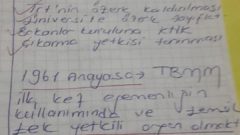 TRT'nin özerk kaldırılması
üniversite özerk
Bakanlar kuruluna KHK
çıkarma yetkisi tanınması
1961 Anayasa → TBMM
ilk kez egemenliğin
kullanımında ve temsil
tek yetkili organ olmakt